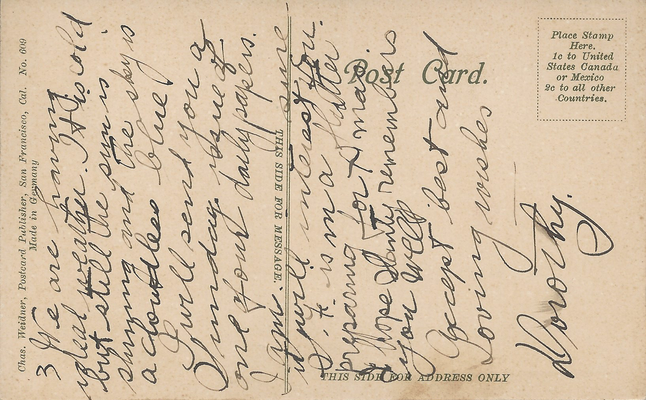 Post Card.
Place Stamp
Here.
1c to United
States Canada
or Mexico
2c to all other
Countries.
Chas. Weidner, Postcard Publisher, San Francisco, Cal. No. 609
Made in Germany
THIS SIDE FOR MESSAGE.
THIS SIDE FOR ADDRESS ONLY
3
We are having
ideal weather. It is cold
but still the sun is
and the sky is
a cloudless blue.
I will send you a
Sunday issue of
one of our daily papers.
I am sure
it will interest you.
S. F. is in a flutter
preparing for
I hope Santy remembers
you well.
Except best and
loving wishes
Dorothy.